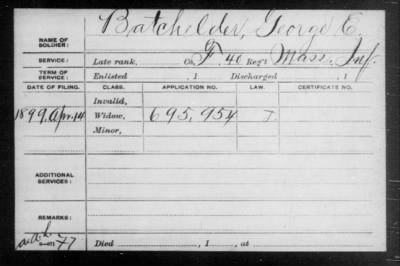 NAME OF SOLDIER: Batchelder, George E.
SERVICE: Late rank, Co. F. 40 Reg't Mass. Inf.
TERM OF SERVICE: Enlisted , 1 Discharged , 1
DATE OF FILING. CLASS. APPLICATION NO. LAW. CERTIFICATE NO.
Invalid,
1899, Apr. 14 Widow, 695,954
Minor,
ADDITIONAL SERVICES:
REMARKS:
Died , 1 , at